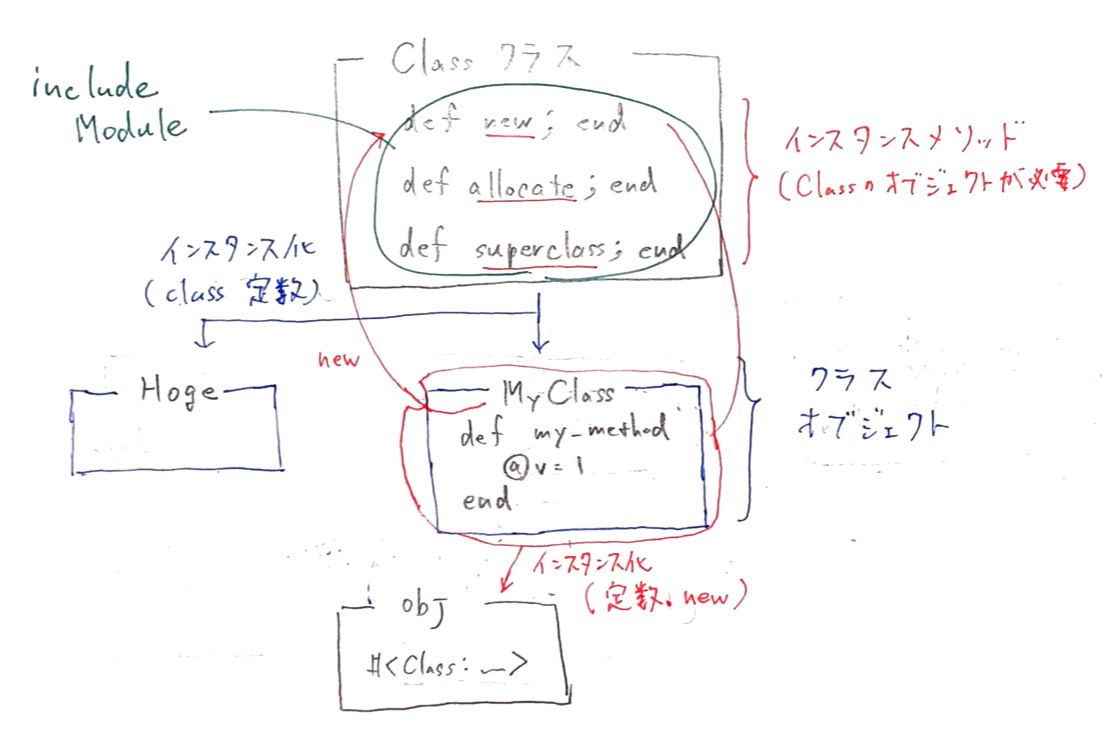 Class クラス
include
Module
def new; end
def allocate; end
def superclass; end
インスタンスメソッド
(Classのオブジェクトが必要)
インスタンス化
(class 定数)
new
Hoge
MyClass
def my-method
@v = 1
end
クラス
オブジェクト
インスタンス化
(定数.new)
obj
#<Class: ...>